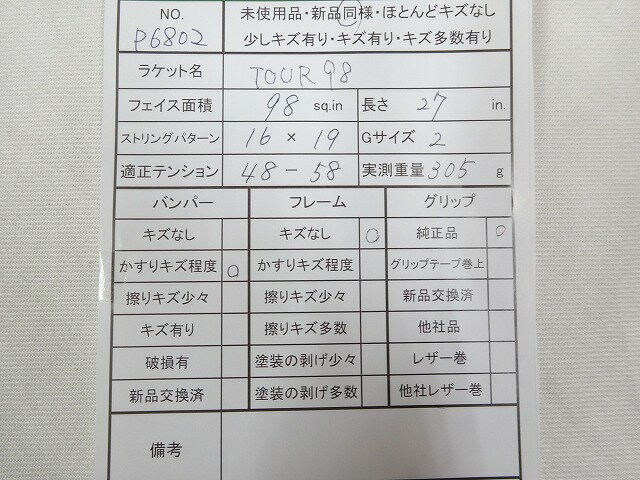 NO. 未使用品・新品同様・ほとんどキズなし
P6802 少しキズ有り・キズ有り・キズ多数有り
ラケット名 TOUR 98
フェイス面積 98 sq.in 長さ 27 in.
ストリングパターン 16 × 19 Gサイズ 2
適正テンション 48 - 58 実測重量 305 g
バンパー フレーム グリップ
キズなし キズなし ○ 純正品 ○
かすりキズ程度 ○ かすりキズ程度 グリップテープ巻上
擦りキズ少々 擦りキズ少々 新品交換済
キズ有り 擦りキズ多数 他社品
破損有 塗装の剥げ少々 レザー巻
新品交換済 塗装の剥げ多数 他社レザー巻
備考